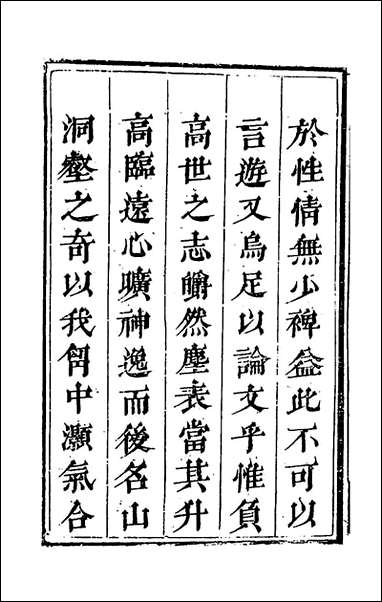 於性情無少裨益此不可以
言遊又烏足以論文乎惟負
高世之志皭然塵表當其升
高臨遠心曠神逸而後名山
洞壑之奇以我胷中灝氣合